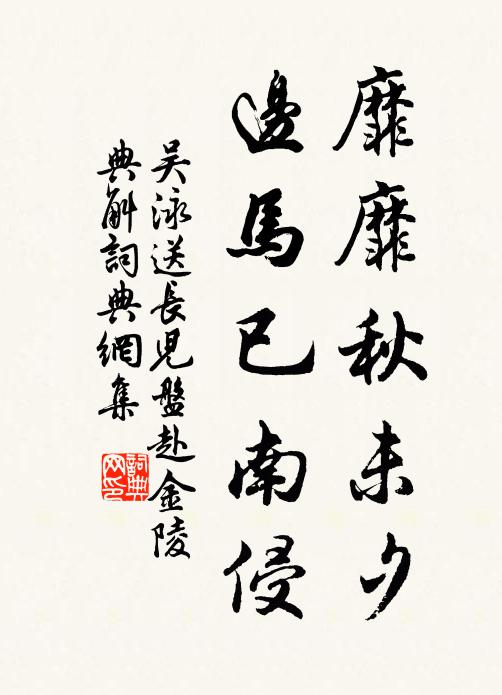 靡靡秋未夕
邊馬已南侵
吴泳送長兒盤赴金陵
典斛詞典網集
詞典网印